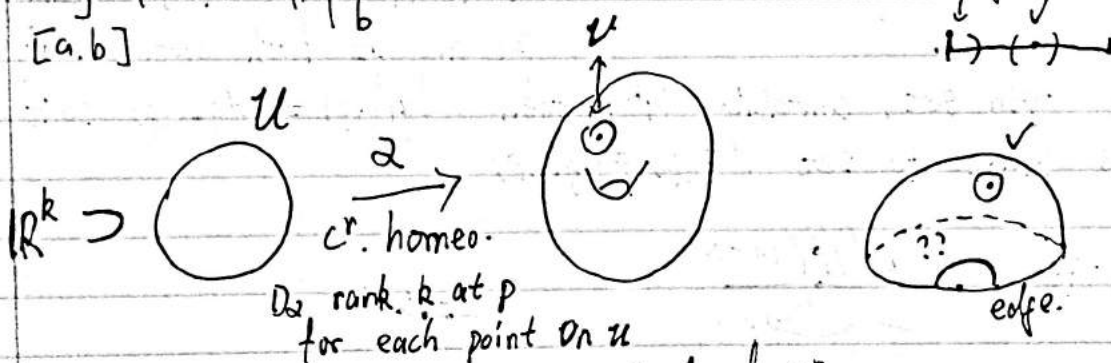 b
[a.b]
U
v
α
ℝᵏ ⊃
Cʳ. homeo.
Dα rank. k at p
for each point on u
??
edge.